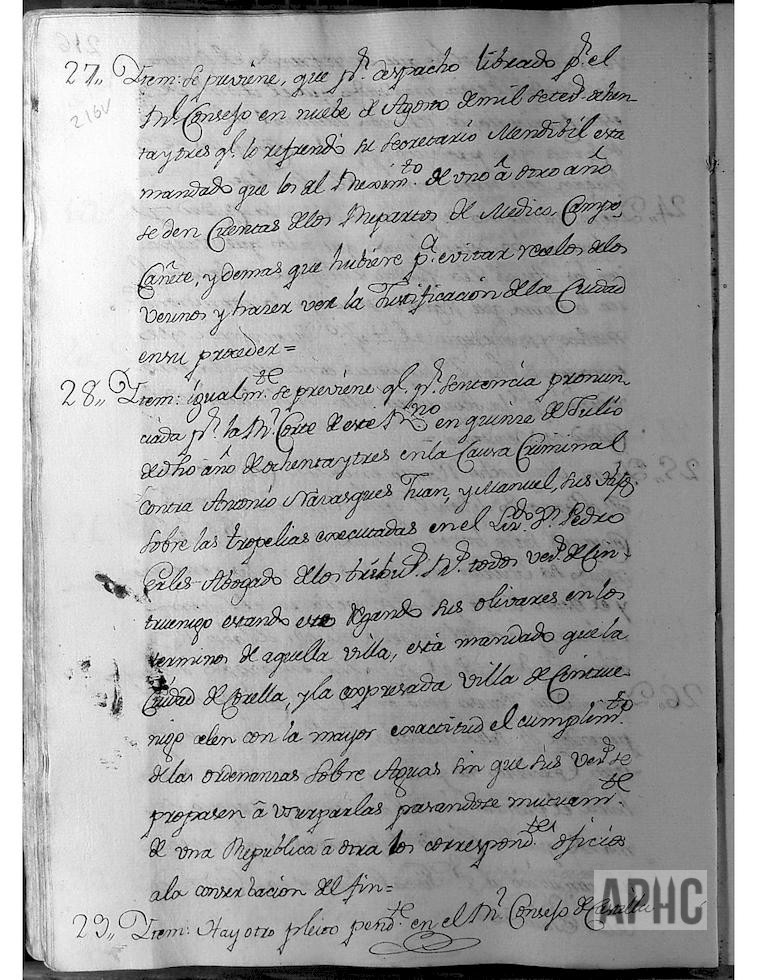 27,, Item: se previene, que pr. despacho librado pr. el
Rl. Consejo en nuebe de Agosto de mil setecs. ochen
ta y tres qe. lo refrendó su Secretario Mendibil esta
216V
mandado que los del Rexim.to de uno â otro año
se den Cuentas de los Repartos de Medico, Campo,
Cañete, y demas que hubiere pa. evitar recelos de los
vecinos y hazer ver la Justificacion de la Ciudad
en su proceder=
28,, Item: igualm.te se previene qe. pr. sentencia pronun
ciada pr. la Rl. Corte de este R.no en quinze de Julio
de dho año de ochenta y tres en la Causa Criminal
contra Antonio Navasques Juan, y Manuel, sus Hijos.
sobre las tropelias executadas en el Liz.do Dn. Pedro
Abogado de los tribus. Rs. todos vecs. de Cin
truenigo estando este regando sus olivares en los
terminos de aquella villa, está mandado que la
Ciudad de Corella, y la expresada villa de Cintrue
nigo zelen con la mayor exactitud el cumplim.to
de las ordenanzas sobre Aguas sin que sus vecs. se
propasen â usurparlas pasandose mutuam.te
de una Republica â otra los correspond.tes oficios
a la conserbacion del fin=
29,, Item: Hay otro pleito pend.te en el Rl. Consejo de Castilla
APHC